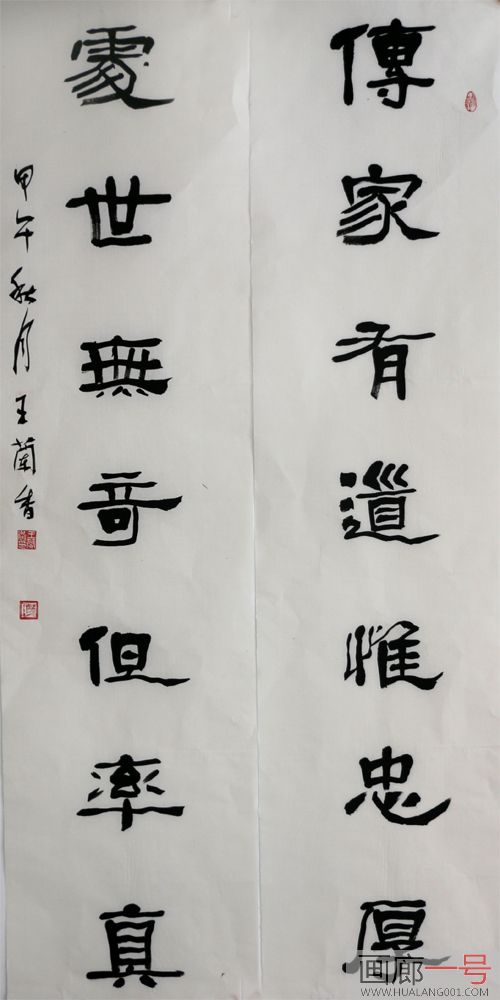 傳家有道惟忠厚
處世無奇但率真
甲午秋月王蘭香
画廊一号
WWW.HUALANG001.COM